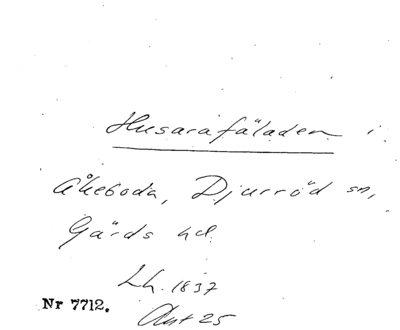 Husarafäladen i
Åkeboda, Djurröd sn,
Gärds hd.
Lh. 1837
Nr 7712.
Akt 25